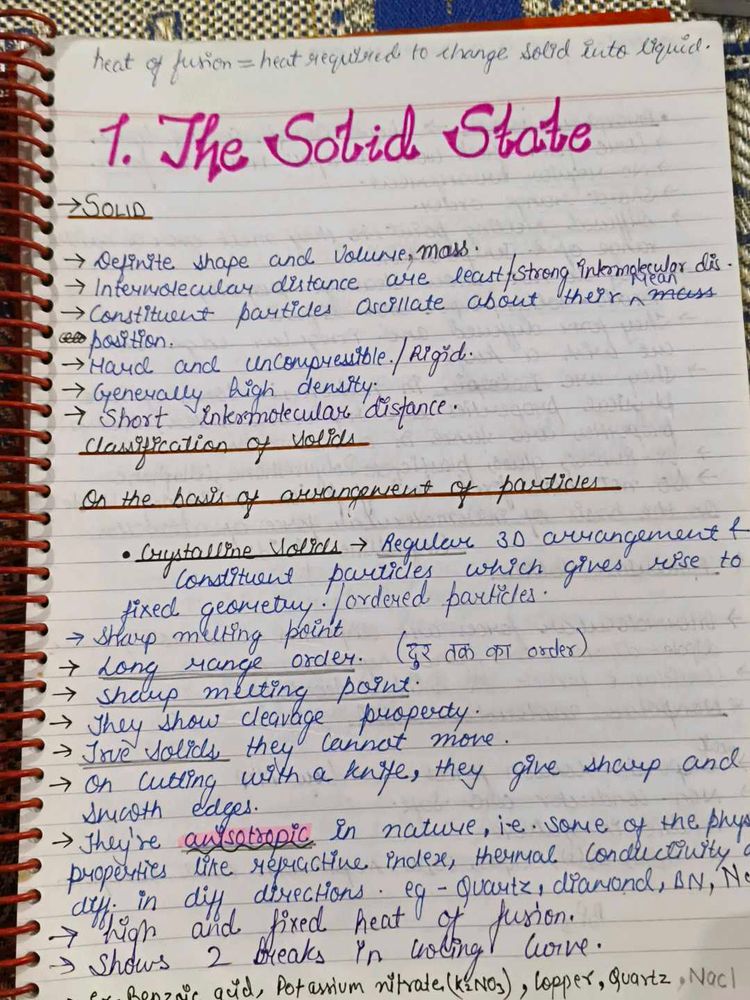 heat of fusion = heat required to change solid into liquid.
1. The Solid State
→ SOLID
→ Definite shape and volume, mass.
→ Intermolecular distance are least/Strong intermolecular dis.
→ Constituent particles oscillate about their Mean mass
position.
→ Hard and uncompressible./Rigid.
→ Generally high density.
→ Short intermolecular distance.
Classification of solids
On the basis of arrangement of particles
• Crystalline solids → Regular 3D arrangement f
constituent particles which gives rise to
fixed geometry./ordered particles.
→ Sharp melting point
→ Long range order. (दूर तक का order)
→ Sharp melting point.
→ They show cleavage property.
→ True solids they cannot move.
→ On cutting with a knife, they give sharp and
smooth edges.
→ They're anisotropic in nature, i.e. some of the phys
properties like refractive index, thermal conductivity
diff. in diff directions. eg - Quartz, diamond, BN,
→ high and fixed heat of fusion.
→ Shows 2 breaks in cooling curve.
Benzoic acid, Potassium nitrate (KNO3), Copper, Quartz, Nacl